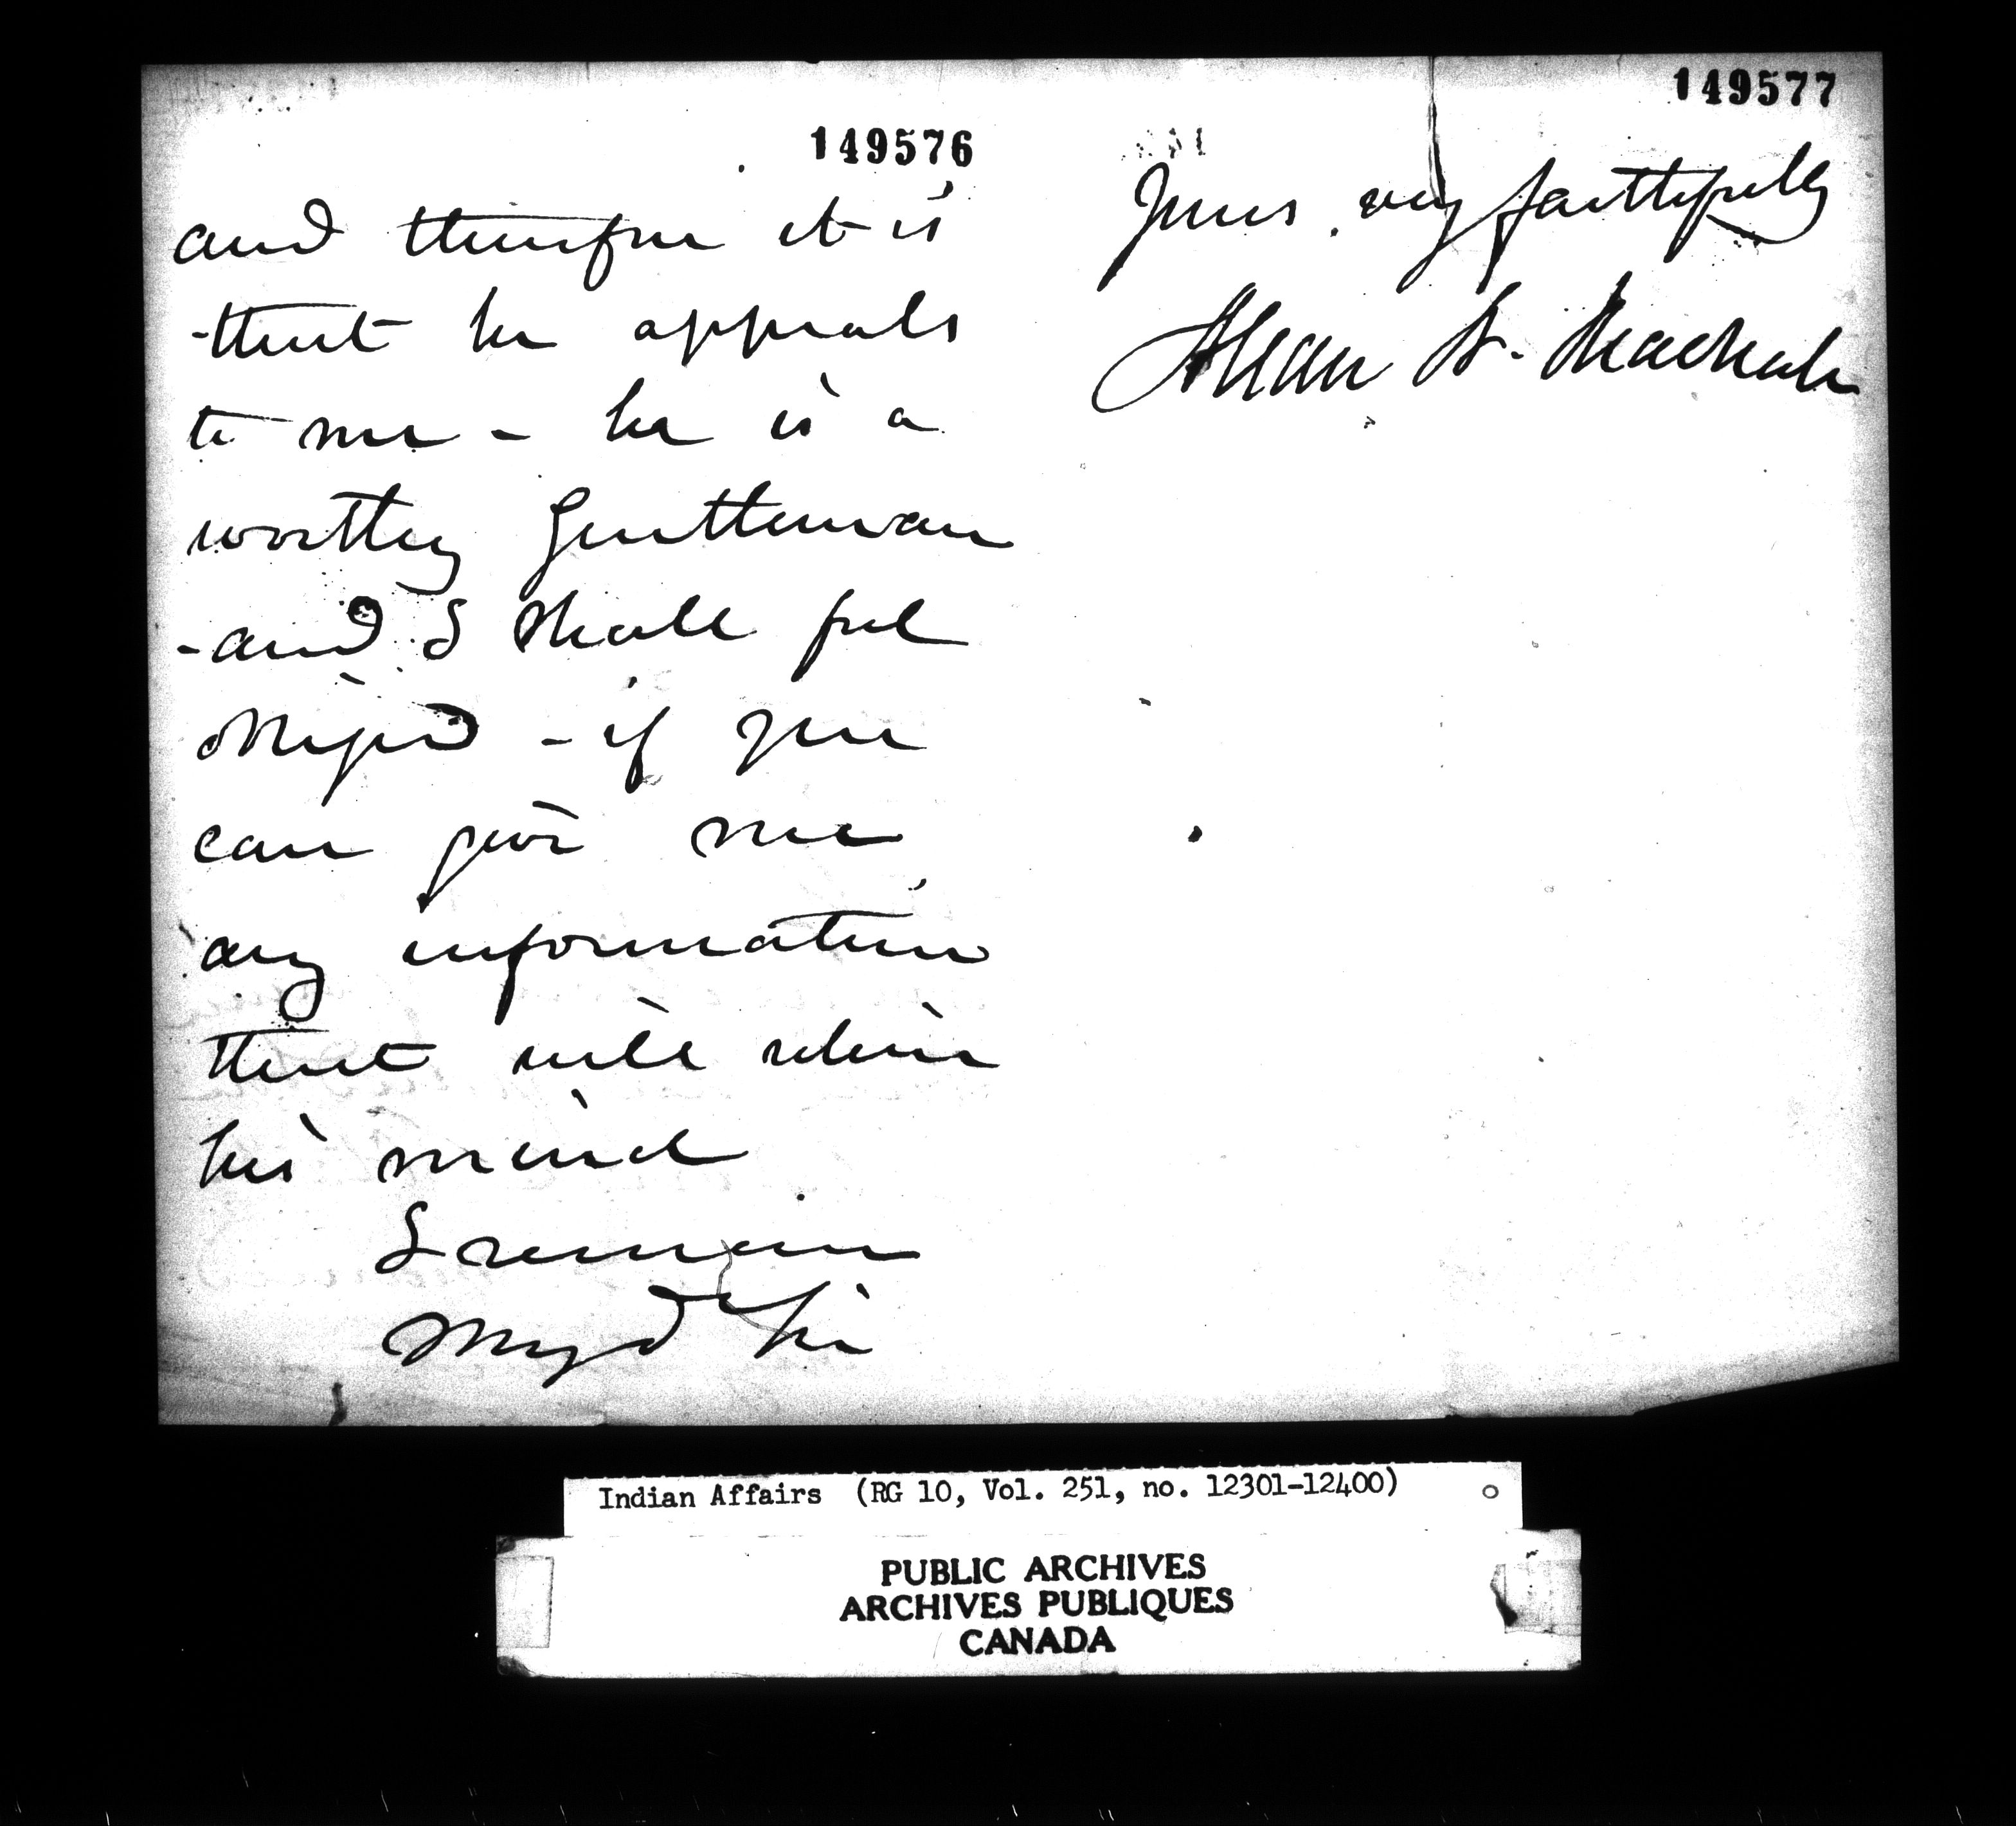 149576
and therefore it is
that he appeals
to me - he is a
worthy Gentleman
- and I shall feel
obliged - if you
can give me
any information
that will relieve
his mind
I remain
My d Sir
149577
Yours very faithfully
Allan N. Macnab
Indian Affairs (RG 10, Vol. 251, no. 12301-12400)
PUBLIC ARCHIVES
ARCHIVES PUBLIQUES
CANADA